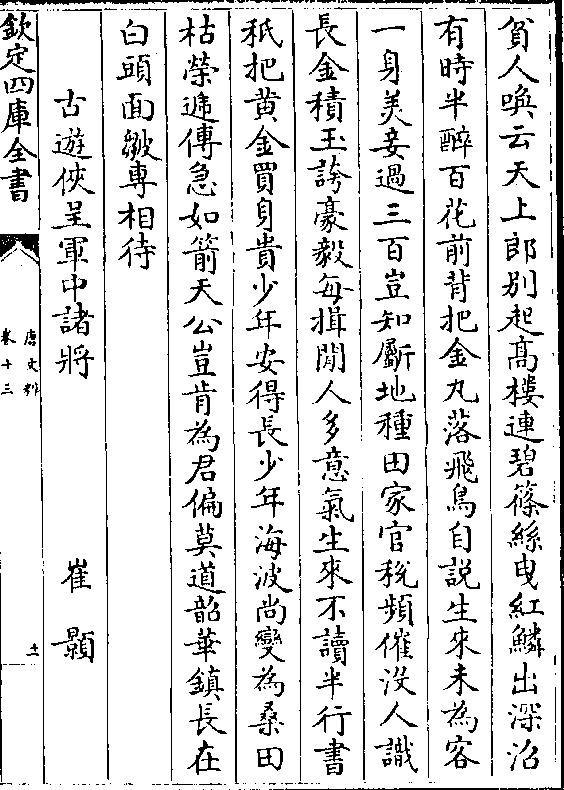 貧人喚云天上郎別起髙樓連碧篠絲曳紅鱗出深沼
有時半醉百花前背把金丸落飛鳥自説生來未為客
一身美妾過三百豈知斸地種田家官稅頻催没人識
長金積玉誇豪毅每揖閒人多意氣生來不讀半行書
秪把黄金買身貴少年安得長少年海波尚變為桑田
枯榮遞傳急如箭天公豈肯為君偏莫道韶華鎮長在
白頭面皺專相待
古遊俠呈軍中諸將 崔顥
欽定四庫全書
唐文粹
卷十三
十